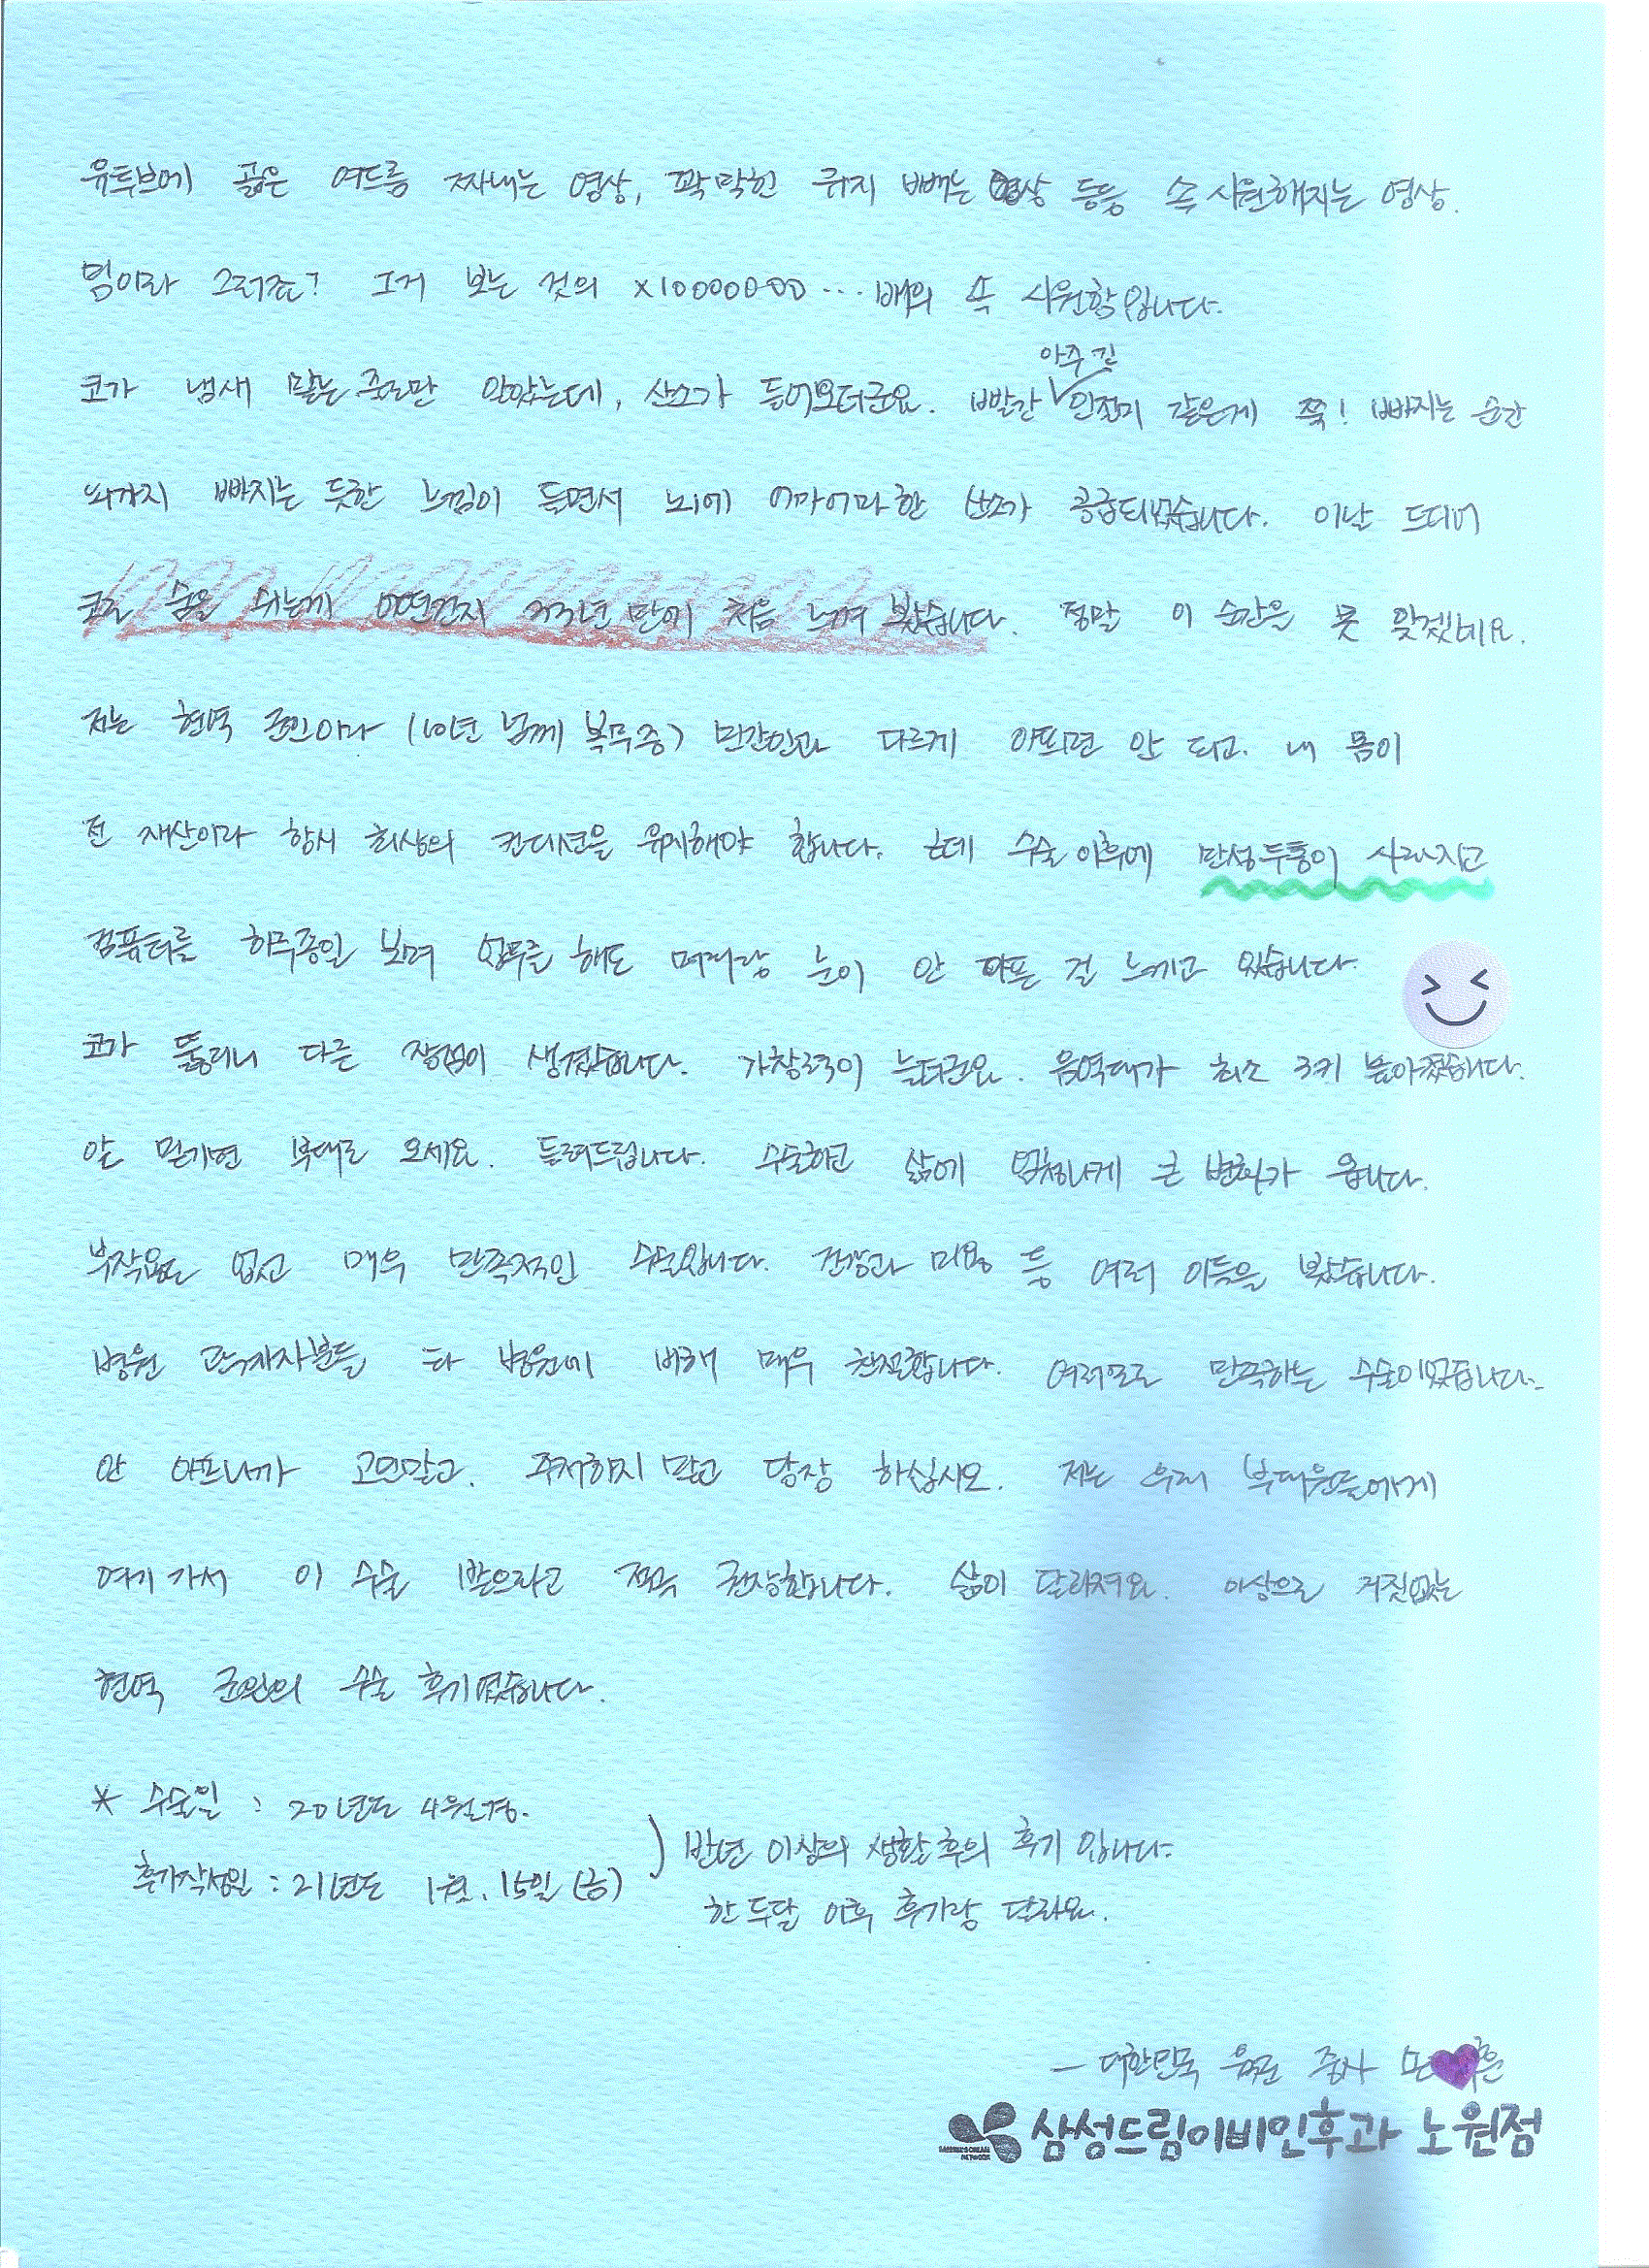 유투브에 곪은 여드름 짜내는 영상, 꽉 막힌 귀지 빼는 영상 등등 속 시원해지는 영상.
밈이라 그러죠? 그거 보는 것의 x10000000... 배의 속 시원함입니다.
코가 냄새 맡는 줄로만 알았는데, 산소가 들어오더군요. 빨간 아주 긴 인절미 같은게 쭉! 빠지는 순간
뇌까지 빠지는 듯한 느낌이 들면서 뇌에 어마어마한 산소가 공급되었습니다. 이날 드디어
코로 숨을 쉬는게 어떤건지 33년 만에 처음 느껴 봤습니다. 정말 이 순간은 못 잊겠네요.
저는 현역 군인이라 (10년 넘게 복무중) 민간인과 다르게 아프면 안 되고. 내 몸이
전 재산이라 항시 최상의 컨디션을 유지해야 합니다. 근데 수술 이후에 만성두통이 사라지고
컴퓨터를 하루종일 보며 업무를 해도 머리랑 눈이 안 아픈 걸 느끼고 있습니다.
코가 뚫리니 다른 장점이 생겼습니다. 가창력이 늘더군요. 음역대가 최소 3키 높아졌습니다.
안 믿기면 부대로 오세요. 들려드립니다. 수술하고 삶에 엄청나게 큰 변화가 옵니다.
부작용은 없고 매우 만족적인 수술입니다. 건강과 미용 등 여러 이득을 봤습니다.
병원 관계자분들 타 병원에 비해 매우 친절합니다. 여러모로 만족하는 수술이었습니다.
안 아프니까 고민말고. 주저하지 말고 당장 하십시오. 저는 우리 부대원들에게
여기 가서 이 수술 받으라고 적극 권장합니다. 삶이 달라져요. 이상으로 거짓없는
현역 군인의 수술 후기였습니다.
* 수술일 : 20년도 4월경.
후기작성일 : 21년도 1월. 15일 (금)
) 반년 이상의 생활 후의 후기 입니다.
한 두달 이후 후기랑 달라요.
- 대한민국 육군 중사
삼성드림이비인후과 노원점